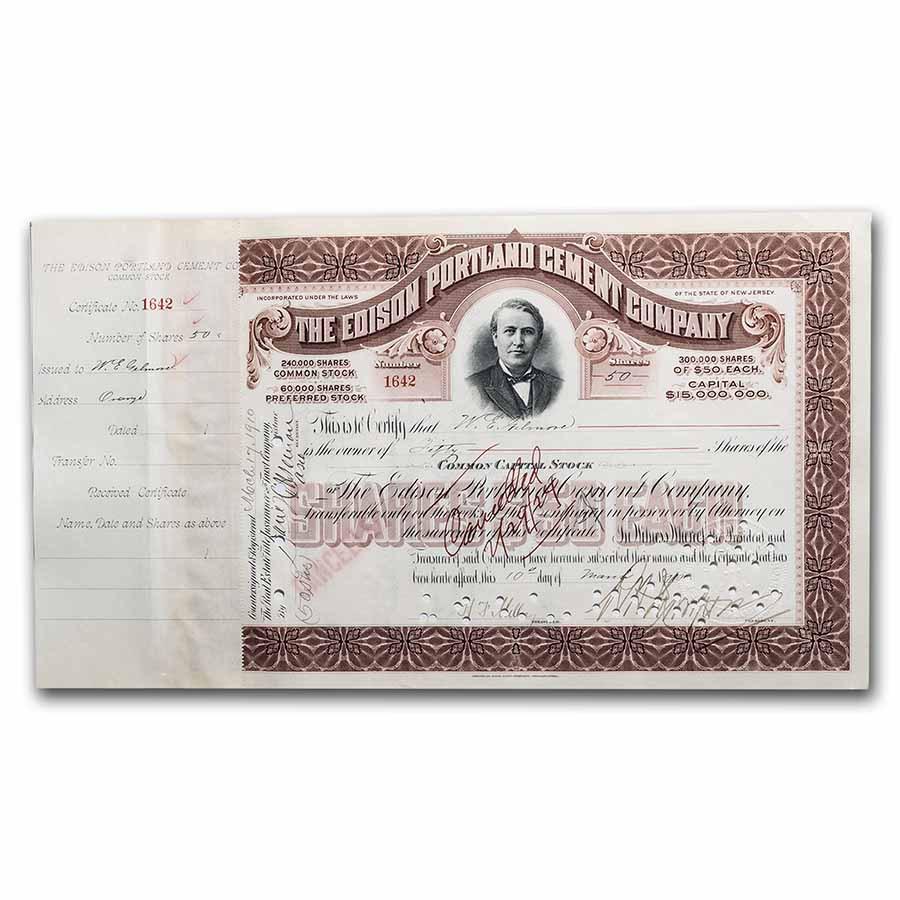 THE EDISON PORTLAND CEMENT CO
COMMON STOCK
Certificate No. 1642
Number of Shares 50
Issued to W. E. Gilmore
Address Orange
Dated
Transfer No.
Received Certificate
Name, Date and Shares as above
THE EDISON PORTLAND CEMENT COMPANY
INCORPORATED UNDER THE LAWS
OF THE STATE OF NEW JERSEY.
240.000 SHARES
COMMON STOCK.
60.000 SHARES
PREFERRED STOCK.
Number
1642
Shares
50
300.000 SHARES
OF $50. EACH.
CAPITAL
$15,000,000.
This is to Certify that W. E. Gilmore
is the owner of Fifty Shares of the
COMMON CAPITAL STOCK
of The Edison Portland Cement Company,
Transferable only on the books of the Company in person or by Attorney on
the surrender of this Certificate. In Witness Whereof, the President and
Treasurer of said Company have hereunto subscribed their names and the Corporate Seal has
been hereto affixed, this 10th day of March
SHARES $50 EACH
Cancelled
Countersigned and Registered March 17, 1910
The Real Estate Title Insurance and Trust Company,
by
TREASURER.
PRESIDENT.